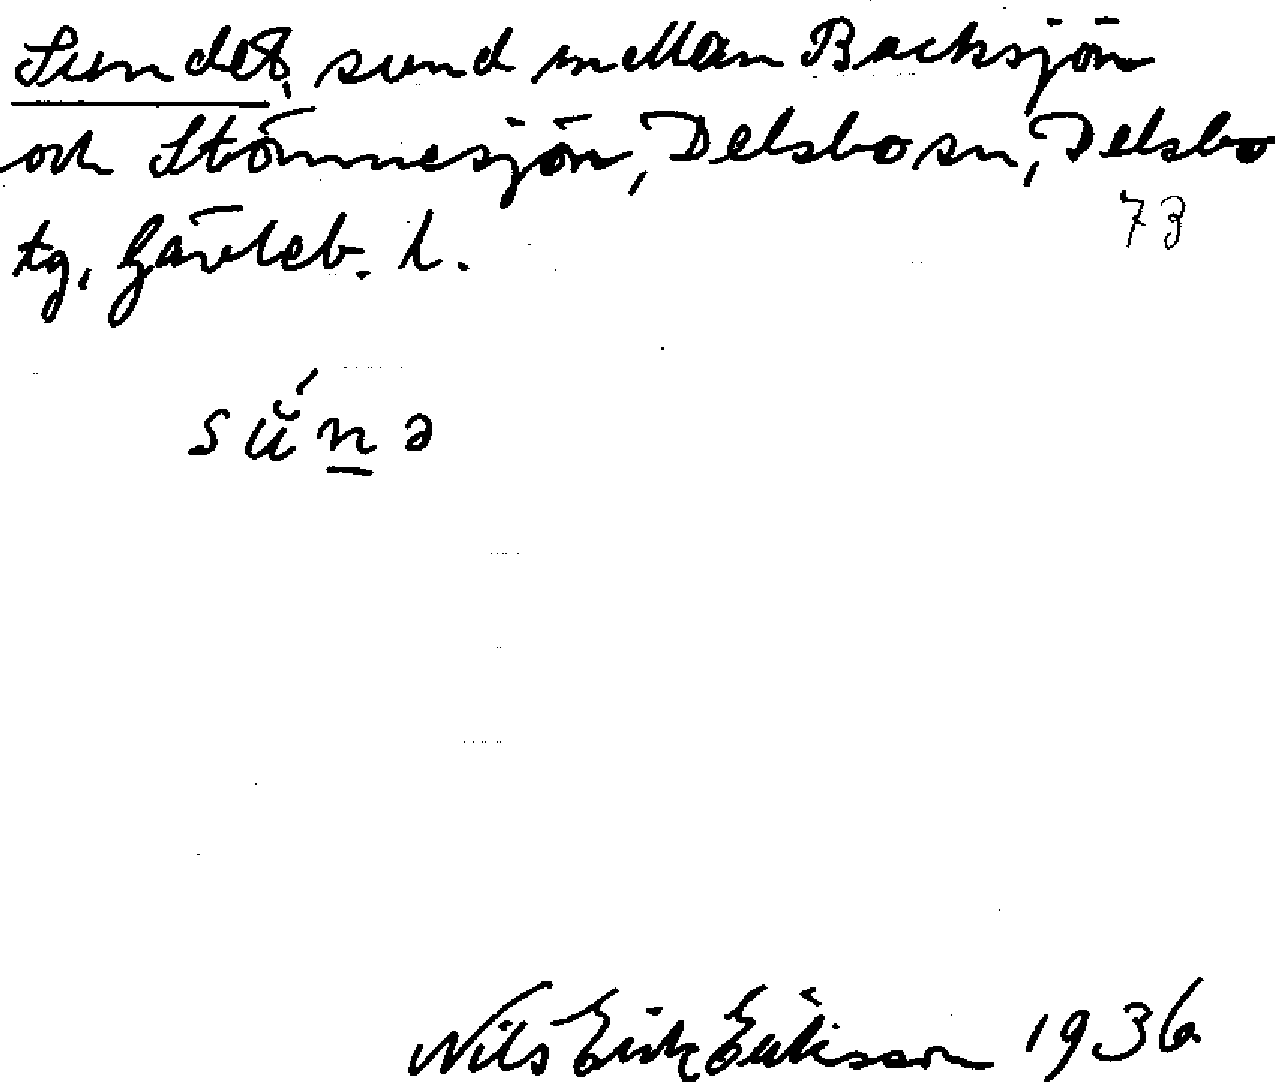 Sundet, sund mellan Backsjön
och Stömnesjön, Delsbo sn, Delsbo
tg, Gävleb. l.
73
sŭ́n̲ə
Nils Erik Eriksson 1936